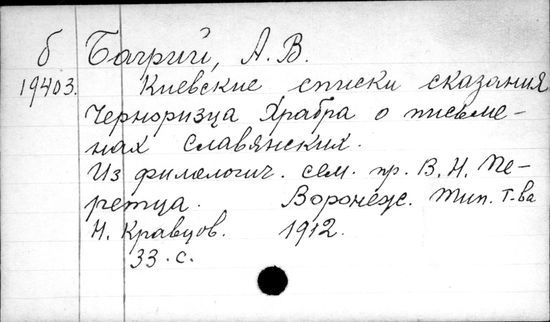 б Багрий, А. В.
19403. Киевские списки сказания
Черноризца Храбра о письме-
нах славянских.
Из филологич. сем. пр. В. Н. Пе-
ретца. Воронеж. Тип. Т-ва
Н. Кравцов. 1912.
33. с.